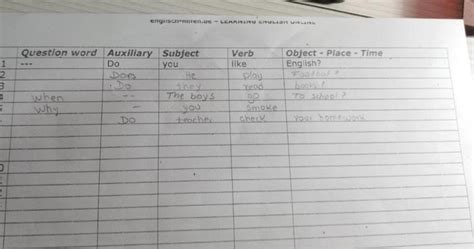 englisch-hilfen.de – LEARNING ENGLISH ONLINE
Question word Auxiliary Subject Verb Object - Place - Time
1 --- Do you like English?
2 Does He play Football?
3 Do they read books?
4 When -- The boys go To school?
5 Why - you smoke
Do teacher check your homework